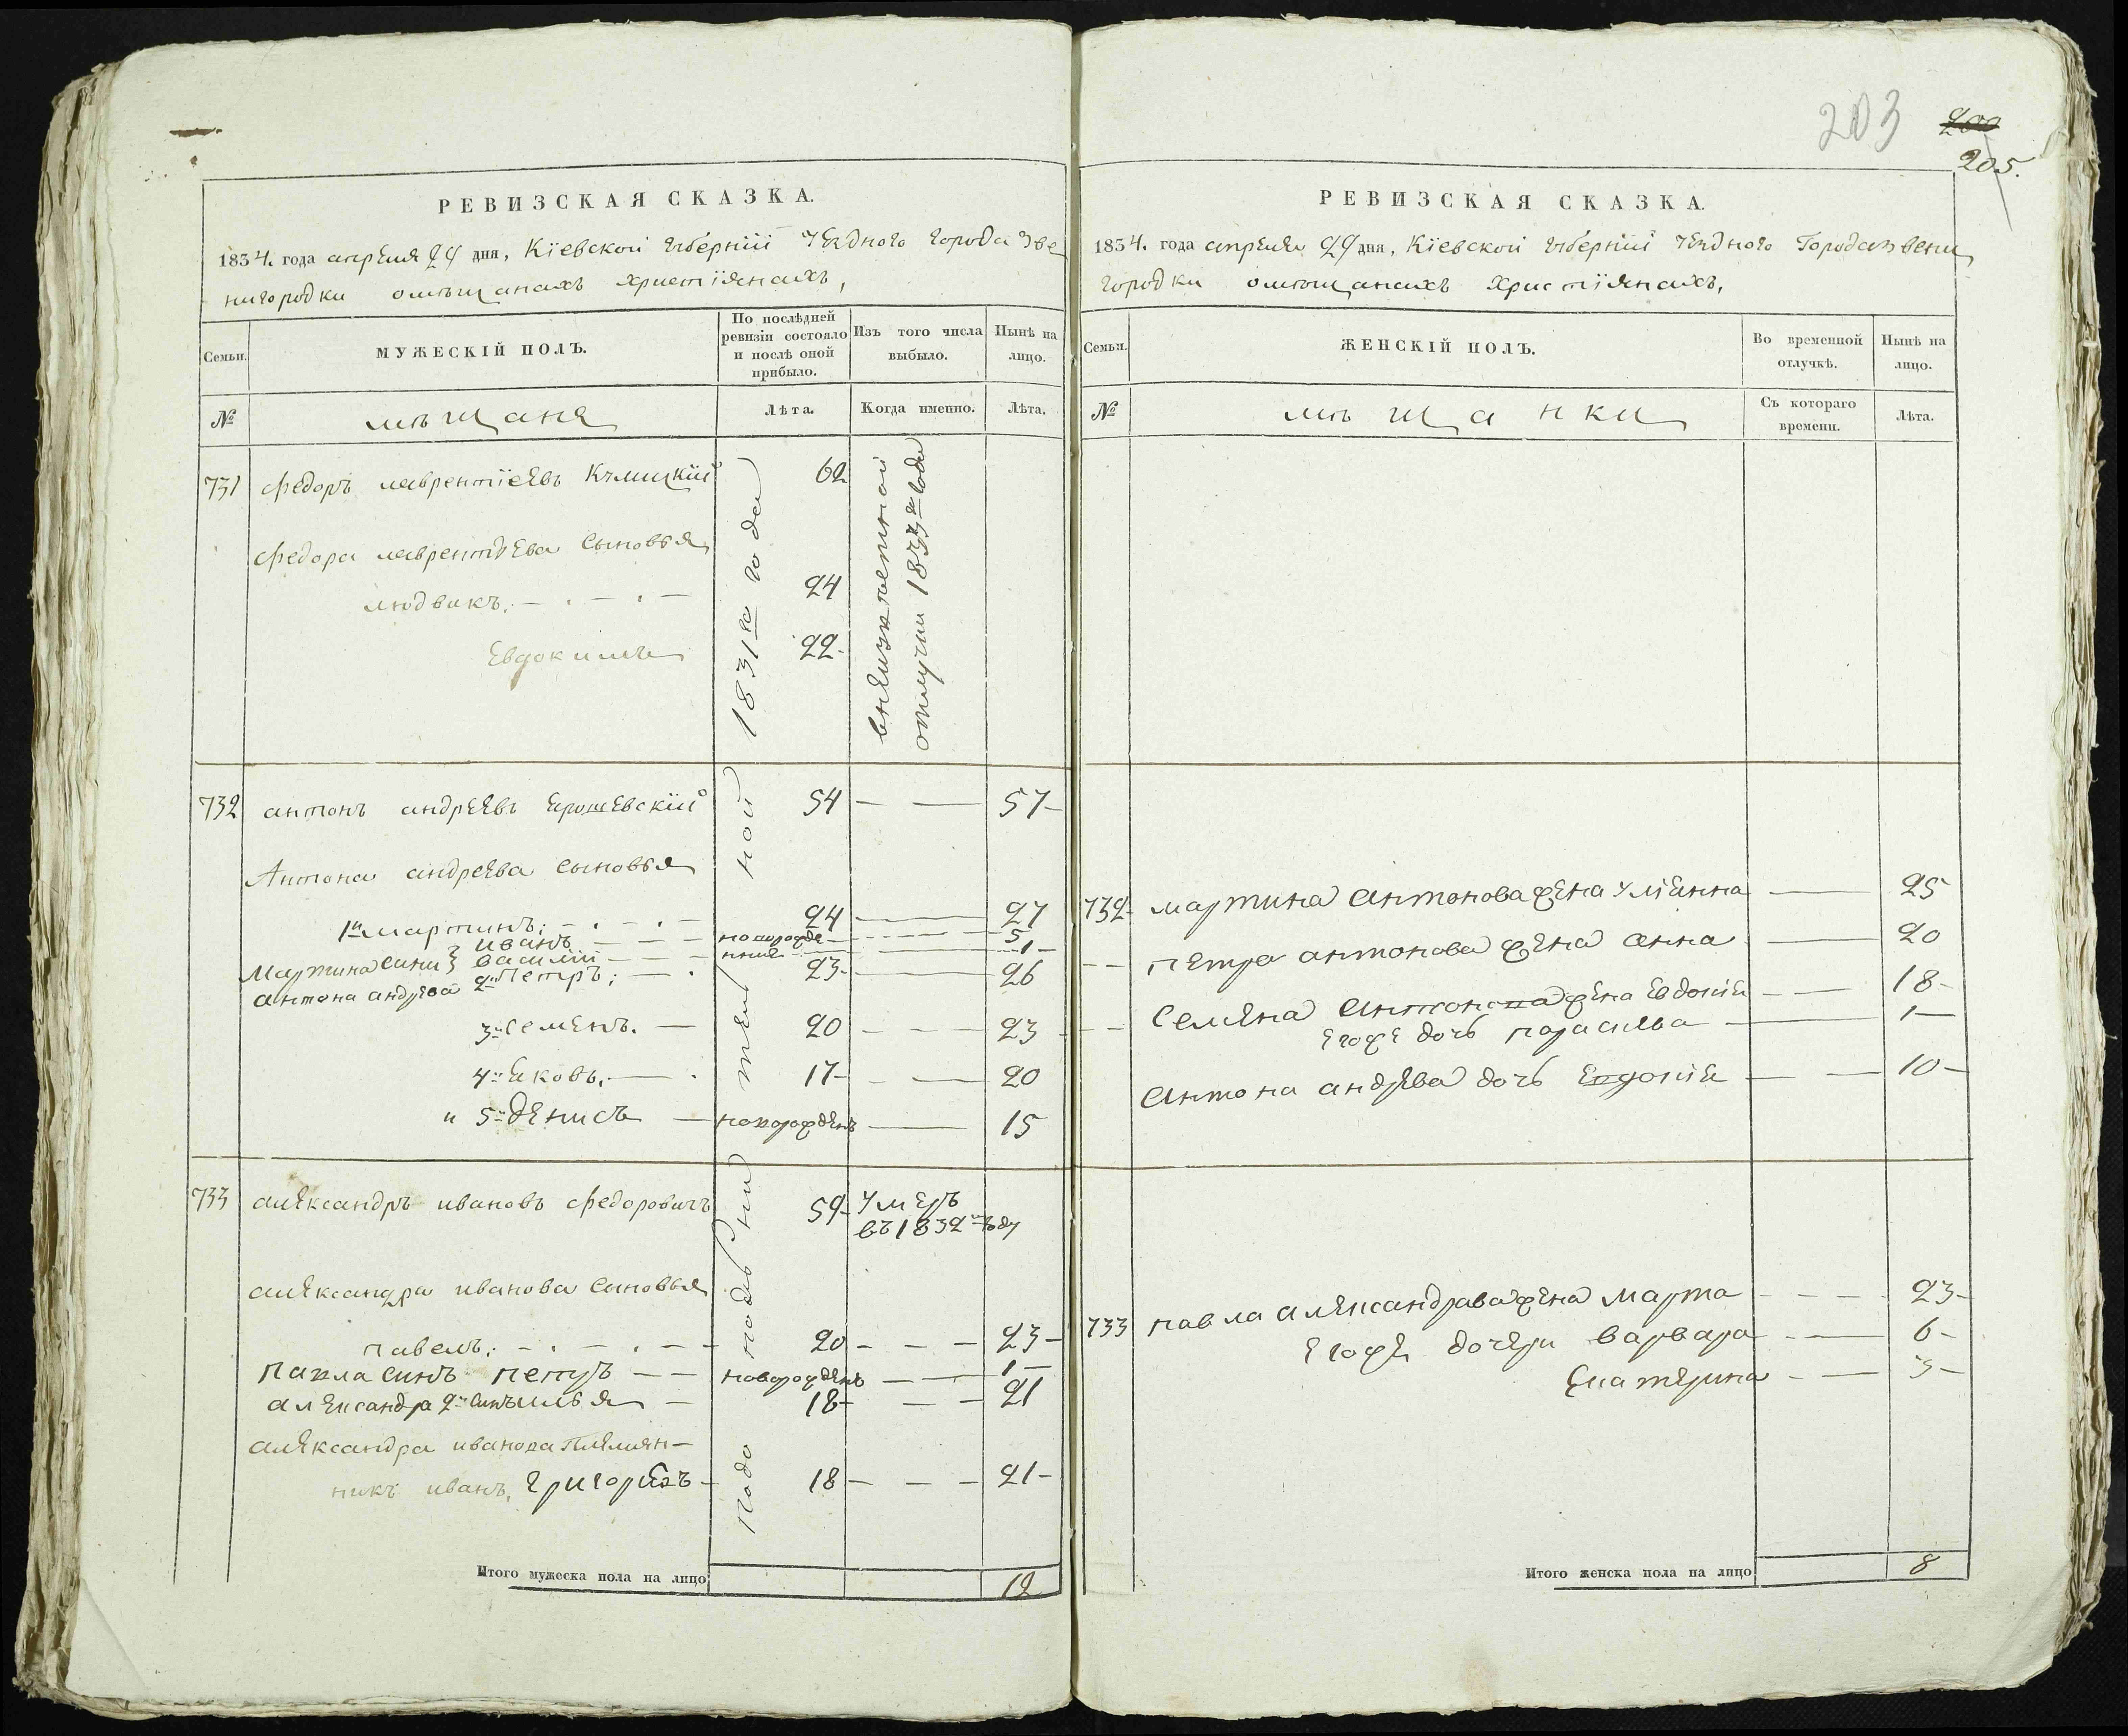 203
200
205.
РЕВИЗСКАЯ СКАЗКА.
1834. года апреля 24 дня, Кіевской губерніи уездного города Зве
нигородки о мѣщанахъ христіянахъ,
Семьи.
МУЖЕСКІЙ ПОЛЪ.
По послѣдней ревизіи состояло и послѣ оной прибыло.
Изъ того числа выбыло.
Нынѣ на лицо.
№
мѣщане
Лѣта.
Когда именно.
Лѣта.
731 Федоръ Лаврентіевъ 62
Федора Лаврентьева сыновья
Людвикъ. 24
Евдокимъ 22
1831го года
отлучки 1833го года
732 Антонъ Андреевъ Ерошевскій 54 57
Антона Андреева сыновья
1й Мартинъ: 24 27
Иванъ новорожде 5
Мартина сини Василій нние 1
Антона Андрева 2й Петръ; 23 26
3й Семенъ. 20 23
4й Яковъ. 17 20
и 5й Денисъ новорожденъ 15
733 Александръ Ивановъ Федоровичъ 59 умеръ
въ 1832м году
Александра Иванова сыновья
Павелъ: 20 23
Павла синъ Петръ новорожденъ 1
Александра 2й синъ Илья 18 21
Александра Иванова племян-
никъ Иванъ, Григорiевъ 18 21
Итого мужеска пола на лицо 12
РЕВИЗСКАЯ СКАЗКА.
1834. года апреля 24 дня, Кіевской губерніи уездного города Звени
городки о мѣщанахъ христіянахъ,
Семьи.
ЖЕНСКІЙ ПОЛЪ.
Во временной отлучкѣ.
Нынѣ на лицо.
№
мѣщанки
Съ котораго времени.
Лѣта.
732 Мартина Антонова жена Уліянна 25
Петра Антонова жена Анна 20
Семена Антонова жена Евдокія 18
Его же дочь Параскева 1
Антона Андрева дочь Евдокія 10
733 Павла Александрава жена Марта 23
Его же дочери Варвара 6
Екатерина 3
Итого женска пола на лицо 8